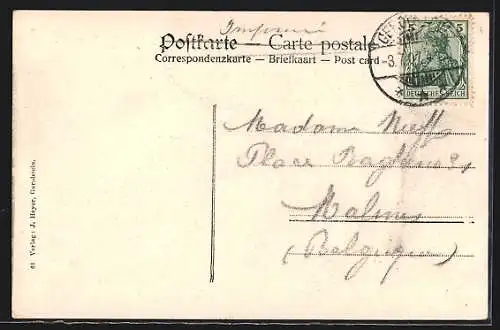 Imprimé
Postkarte — Carte postale
Correspondenzkarte — Briefkaart — Post card
5 5
DEUTSCHES REICH
Madame
Place
Malines
(Belgique)
61 Verlag: J. Heyer, Gerolstein.